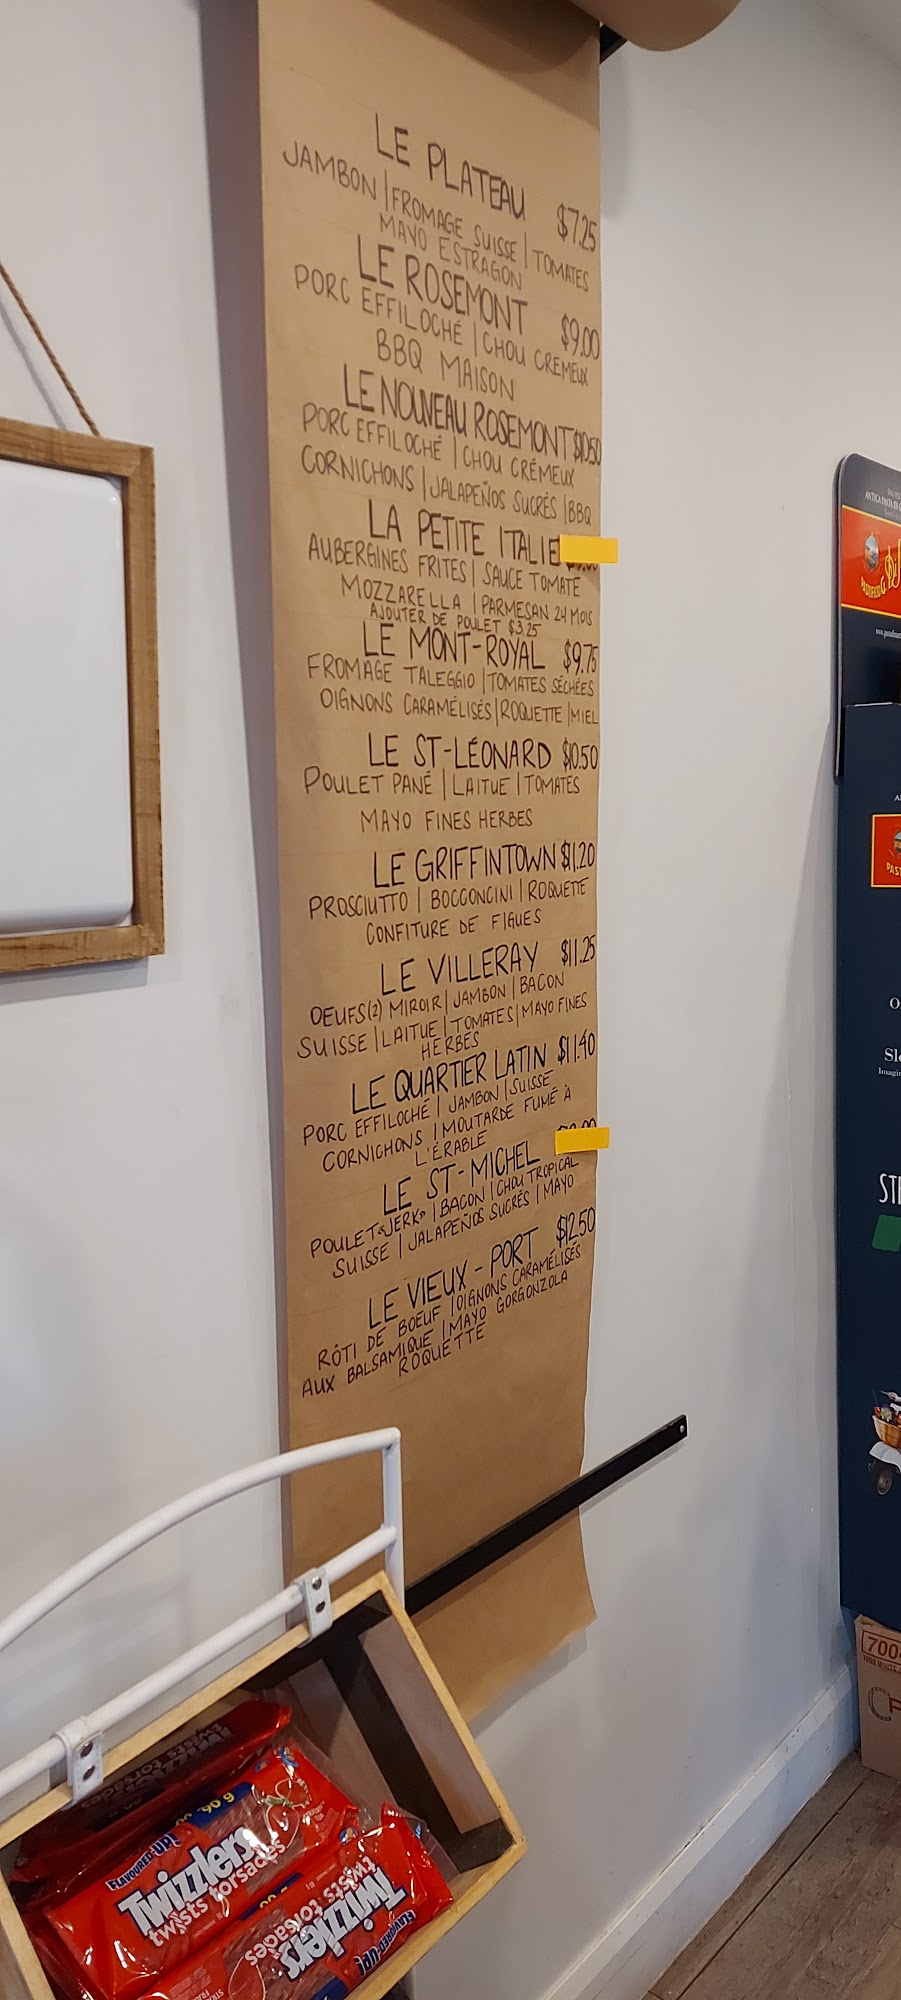 LE PLATEAU $7.25
JAMBON | FROMAGE SUISSE | TOMATES
MAYO ESTRAGON
LE ROSEMONT $9.00
PORC EFFILOCHÉ | CHOU CREMEUX
BBQ MAISON
LE NOUVEAU ROSEMONT $10.50
PORC EFFILOCHÉ | CHOU CRÉMEUX
CORNICHONS | JALAPEÑOS SUCRÉS | BBQ
LA PETITE ITALIE
AUBERGINES FRITES | SAUCE TOMATE
MOZZARELLA | PARMESAN 24 MOIS
AJOUTER DE POULET $3.25
LE MONT-ROYAL $9.75
FROMAGE TALEGGIO | TOMATES SÉCHÉES
OIGNONS CARAMÉLISÉS | ROQUETTE | MIEL
LE ST-LÉONARD $10.50
POULET PANÉ | LAITUE | TOMATES
MAYO FINES HERBES
LE GRIFFINTOWN $11.20
PROSCIUTTO | BOCCONCINI | ROQUETTE
CONFITURE DE FIGUES
LE VILLERAY $11.25
OEUFS(2) MIROIR | JAMBON | BACON
SUISSE | LAITUE | TOMATES | MAYO FINES
HERBES
LE QUARTIER LATIN $11.40
PORC EFFILOCHÉ | JAMBON | SUISSE
CORNICHONS | MOUTARDE FUMÉ À
L'ÉRABLE
LE ST-MICHEL
POULET «JERK» | BACON | CHOU TROPICAL
SUISSE | JALAPEÑOS SUCRÉS | MAYO
LE VIEUX-PORT $12.50
RÔTI DE BOEUF | OIGNONS CARAMÉLISÉS
AUX BALSAMIQUE | MAYO GORGONZOLA
ROQUETTE
twists torsades
90 g
FLAVOURED-Up!
Twizzlers
twists torsades
Twizzlers
twists torsades
FLAVOURED-Up!
700